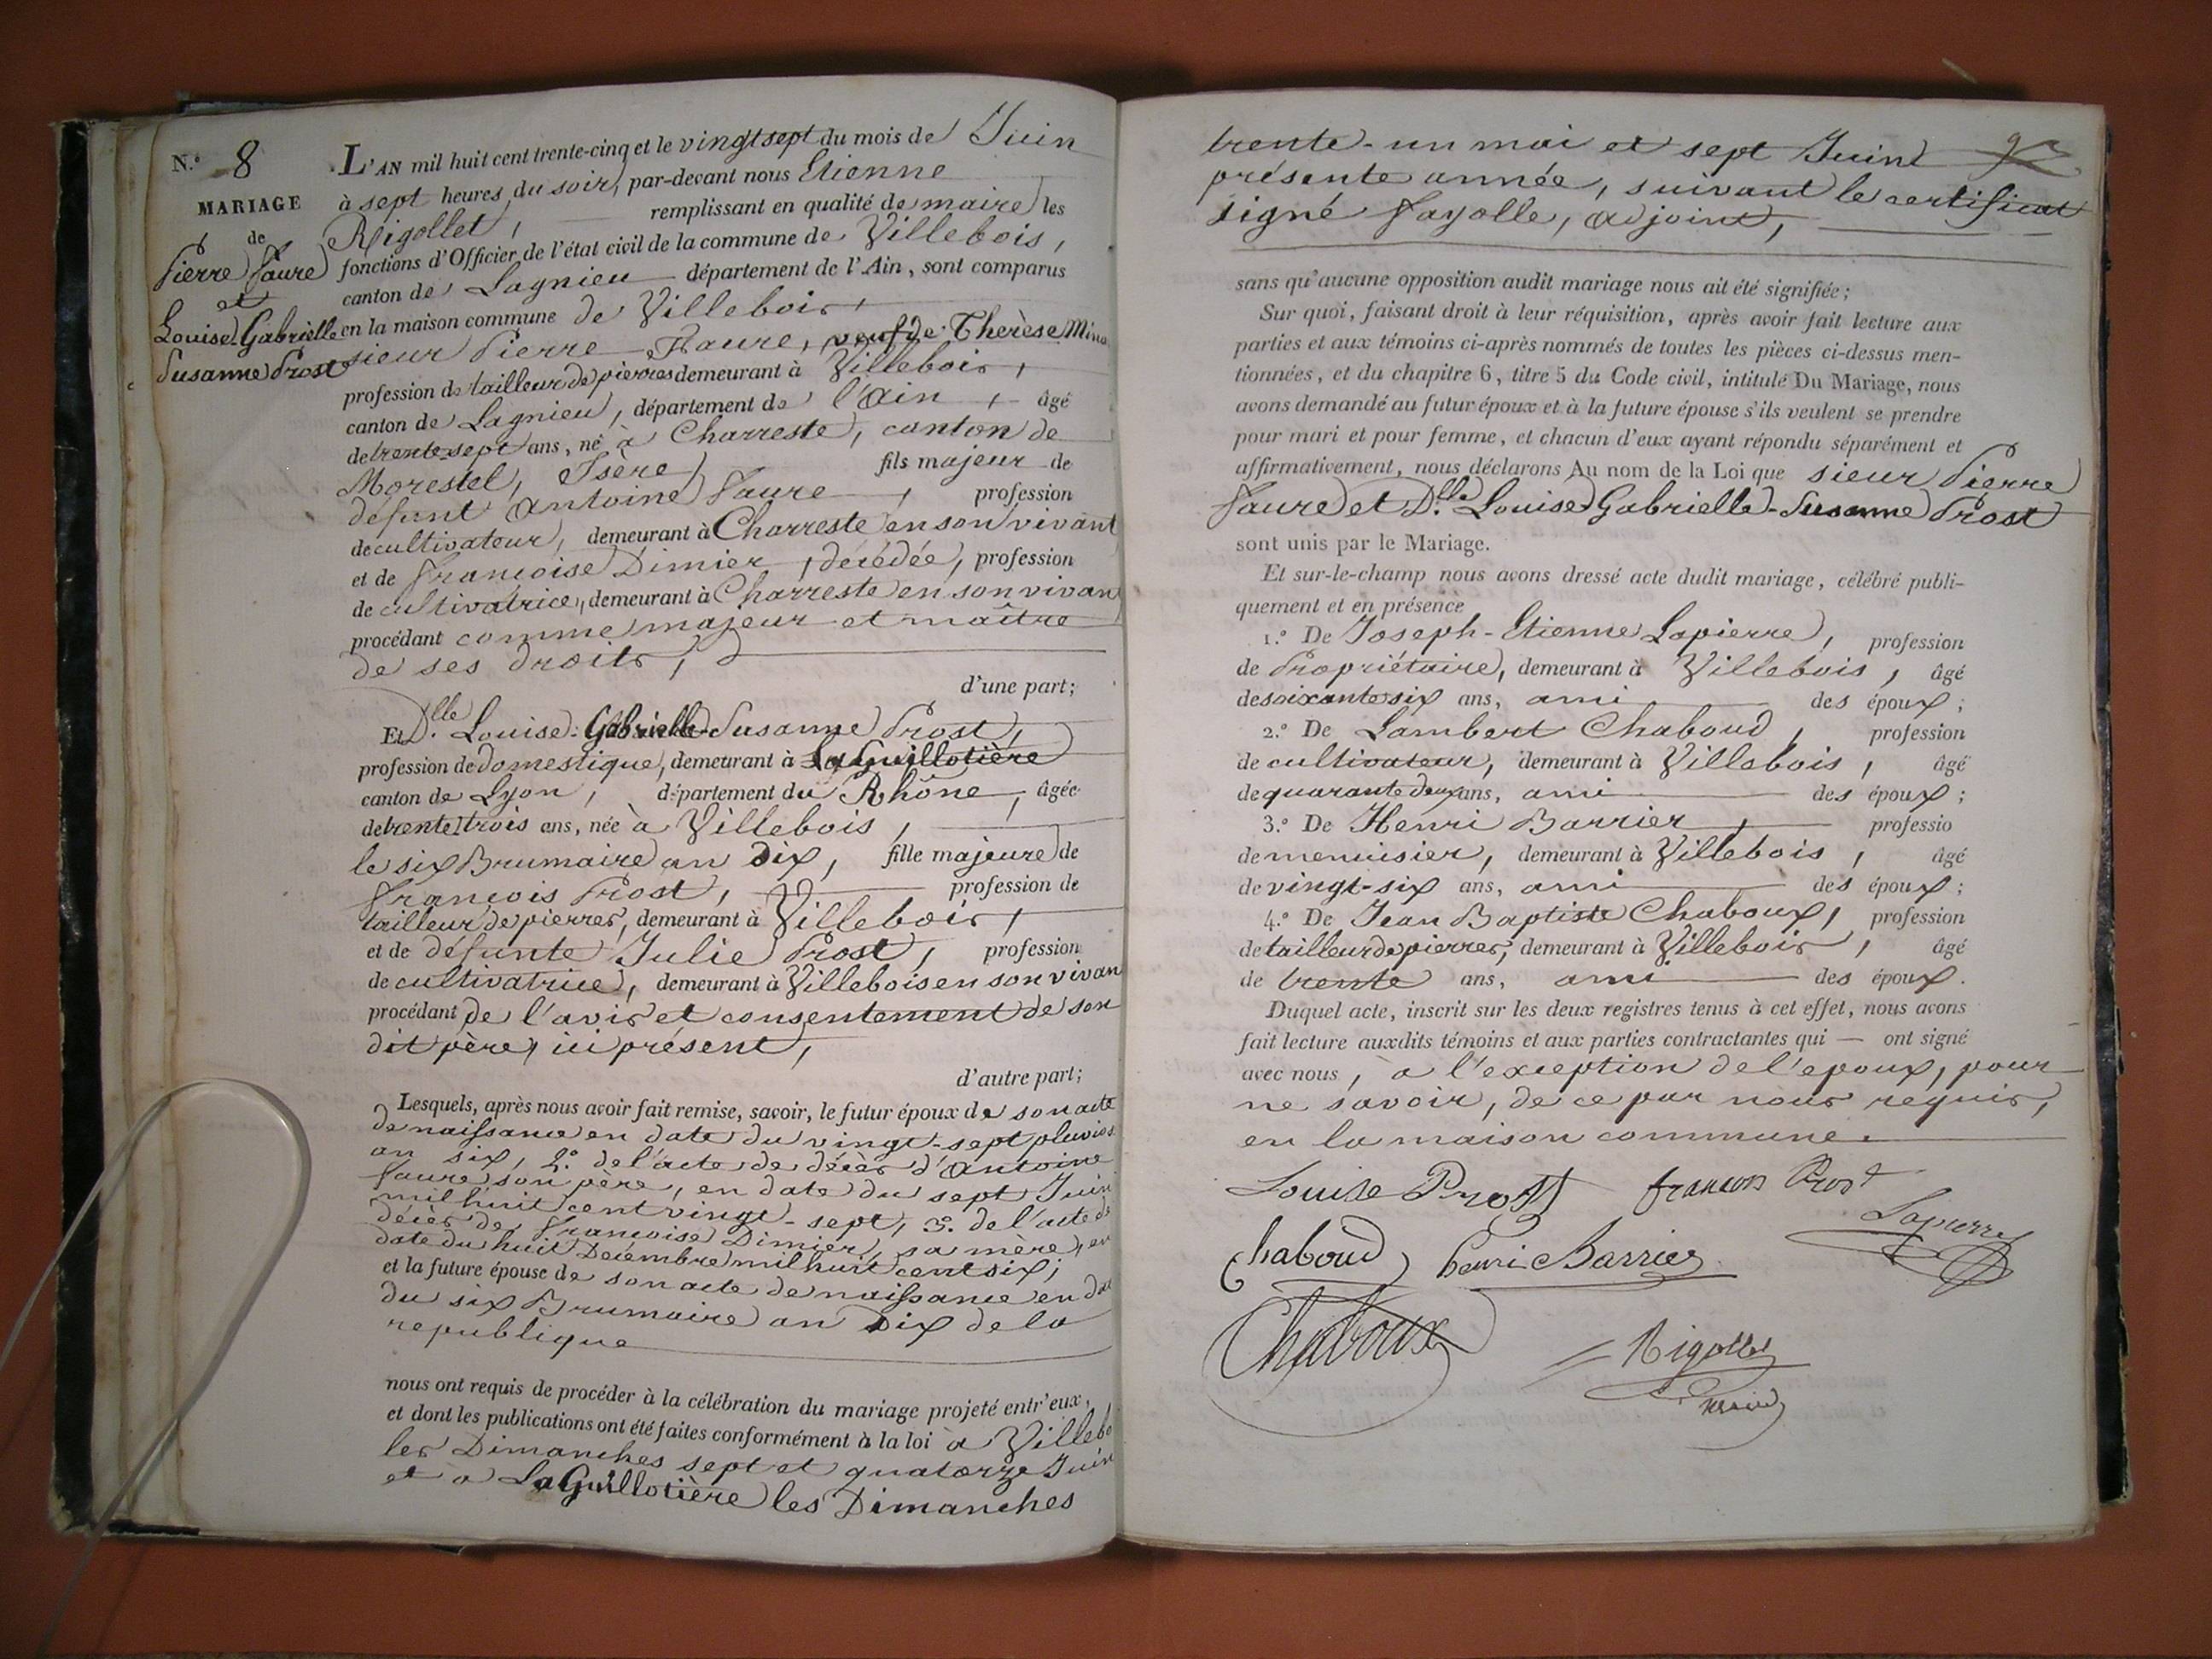 N.° 8
MARIAGE
de
Pierre Faure
et
Louise-Gabrielle
Susanne Prost
L'AN mil huit cent trente-cinq et le vingt sept du mois de Juin
à sept heures du soir, par-devant nous Etienne
Rigollet, remplissant en qualité de maire les
fonctions d'Officier de l'état civil de la commune de Villebois,
canton de Lagnieu département de l'Ain, sont comparus
en la maison commune de Villebois,
sieur Pierre Faure, veuf de Therèse Mino
profession de tailleur de pierres demeurant à Villebois,
canton de Lagnieu, département de l'Ain, âgé
de trente-sept ans, né à Charreste, canton de
Morestel, Isère, fils majeur de
défunt Antoine Faure, profession
de cultivateur, demeurant à Charreste en son vivant
et de Françoise Dimier, décédée, profession
de cultivatrice, demeurant à Charreste en son vivan
procédant comme majeur et maître
de ses droits,
d'une part;
Et D.lle Louise-Gabrielle-Susanne Prost,
profession de domestique, demeurant à La Guillotière
canton de Lyon, département du Rhône, âgée
de trente trois ans, née à Villebois,
le six Brumaire an Dix, fille majeure de
François Prost, profession de
tailleur de pierres, demeurant à Villebois,
et de défunte Julie Prost, profession
de cultivatrice, demeurant à Villebois en son vivan
procédant de l'avis et consentement de son
dit père, ici présent,
d'autre part;
Lesquels, après nous avoir fait remise, savoir, le futur époux de son acte
de naissance en date du vingt-sept pluvios
an six, 2.° de l'acte de décès d'Antoine
Faure son père, en date du sept Juin
mil huit cent vingt-sept, 3.° de l'acte de
décès de Françoise Dimier, sa mère, en
date du huit Decembre mil huit cent six;
et la future épouse de son acte de naissance en dat
du six Brumaire an Dix de la
republique
nous ont requis de procéder à la célébration du mariage projeté entr'eux,
et dont les publications ont été faites conformément à la loi à Villebo
les Dimanches sept et quatorze Juin
et à La Guillotière les Dimanches
trente-un mai et sept Juin
présente année, suivant le certificat
signé Fayolle, adjoint,
sans qu'aucune opposition audit mariage nous ait été signifiée;
Sur quoi, faisant droit à leur réquisition, après avoir fait lecture aux
parties et aux témoins ci-après nommés de toutes les pièces ci-dessus men-
tionnées, et du chapitre 6, titre 5 du Code civil, intitulé Du Mariage, nous
avons demandé au futur époux et à la future épouse s'ils veulent se prendre
pour mari et pour femme, et chacun d'eux ayant répondu séparément et
affirmativement, nous déclarons Au nom de la Loi que sieur Pierre
Faure et D.lle Louise Gabrielle-Susanne Prost
sont unis par le Mariage.
Et sur-le-champ nous avons dressé acte dudit mariage, célébré publi-
quement et en présence
1.° De Joseph-Etienne Lapierre, profession
de Propriétaire, demeurant à Villebois, âgé
de soixante six ans, ami des époux;
2.° De Lambert Chaboud, profession
de cultivateur, demeurant à Villebois, âgé
de quarante deux ans, ami des époux;
3.° De Henri Barrier, professio
de menuisier, demeurant à Villebois, âgé
de vingt-six ans, ami des époux;
4.° De Jean Baptiste Chaboux, profession
de tailleur de pierres, demeurant à Villebois, âgé
de trente ans, ami des époux.
Duquel acte, inscrit sur les deux registres tenus à cet effet, nous avons
fait lecture auxdits témoins et aux parties contractantes qui — ont signé
avec nous, à l'exception de l'epoux, pour
ne savoir, de ce par nous requis,
en la maison commune.
Louise Prost francois Prost
Lapierre
Chaboud henri Barrier
Chaboux
Rigollet
maire